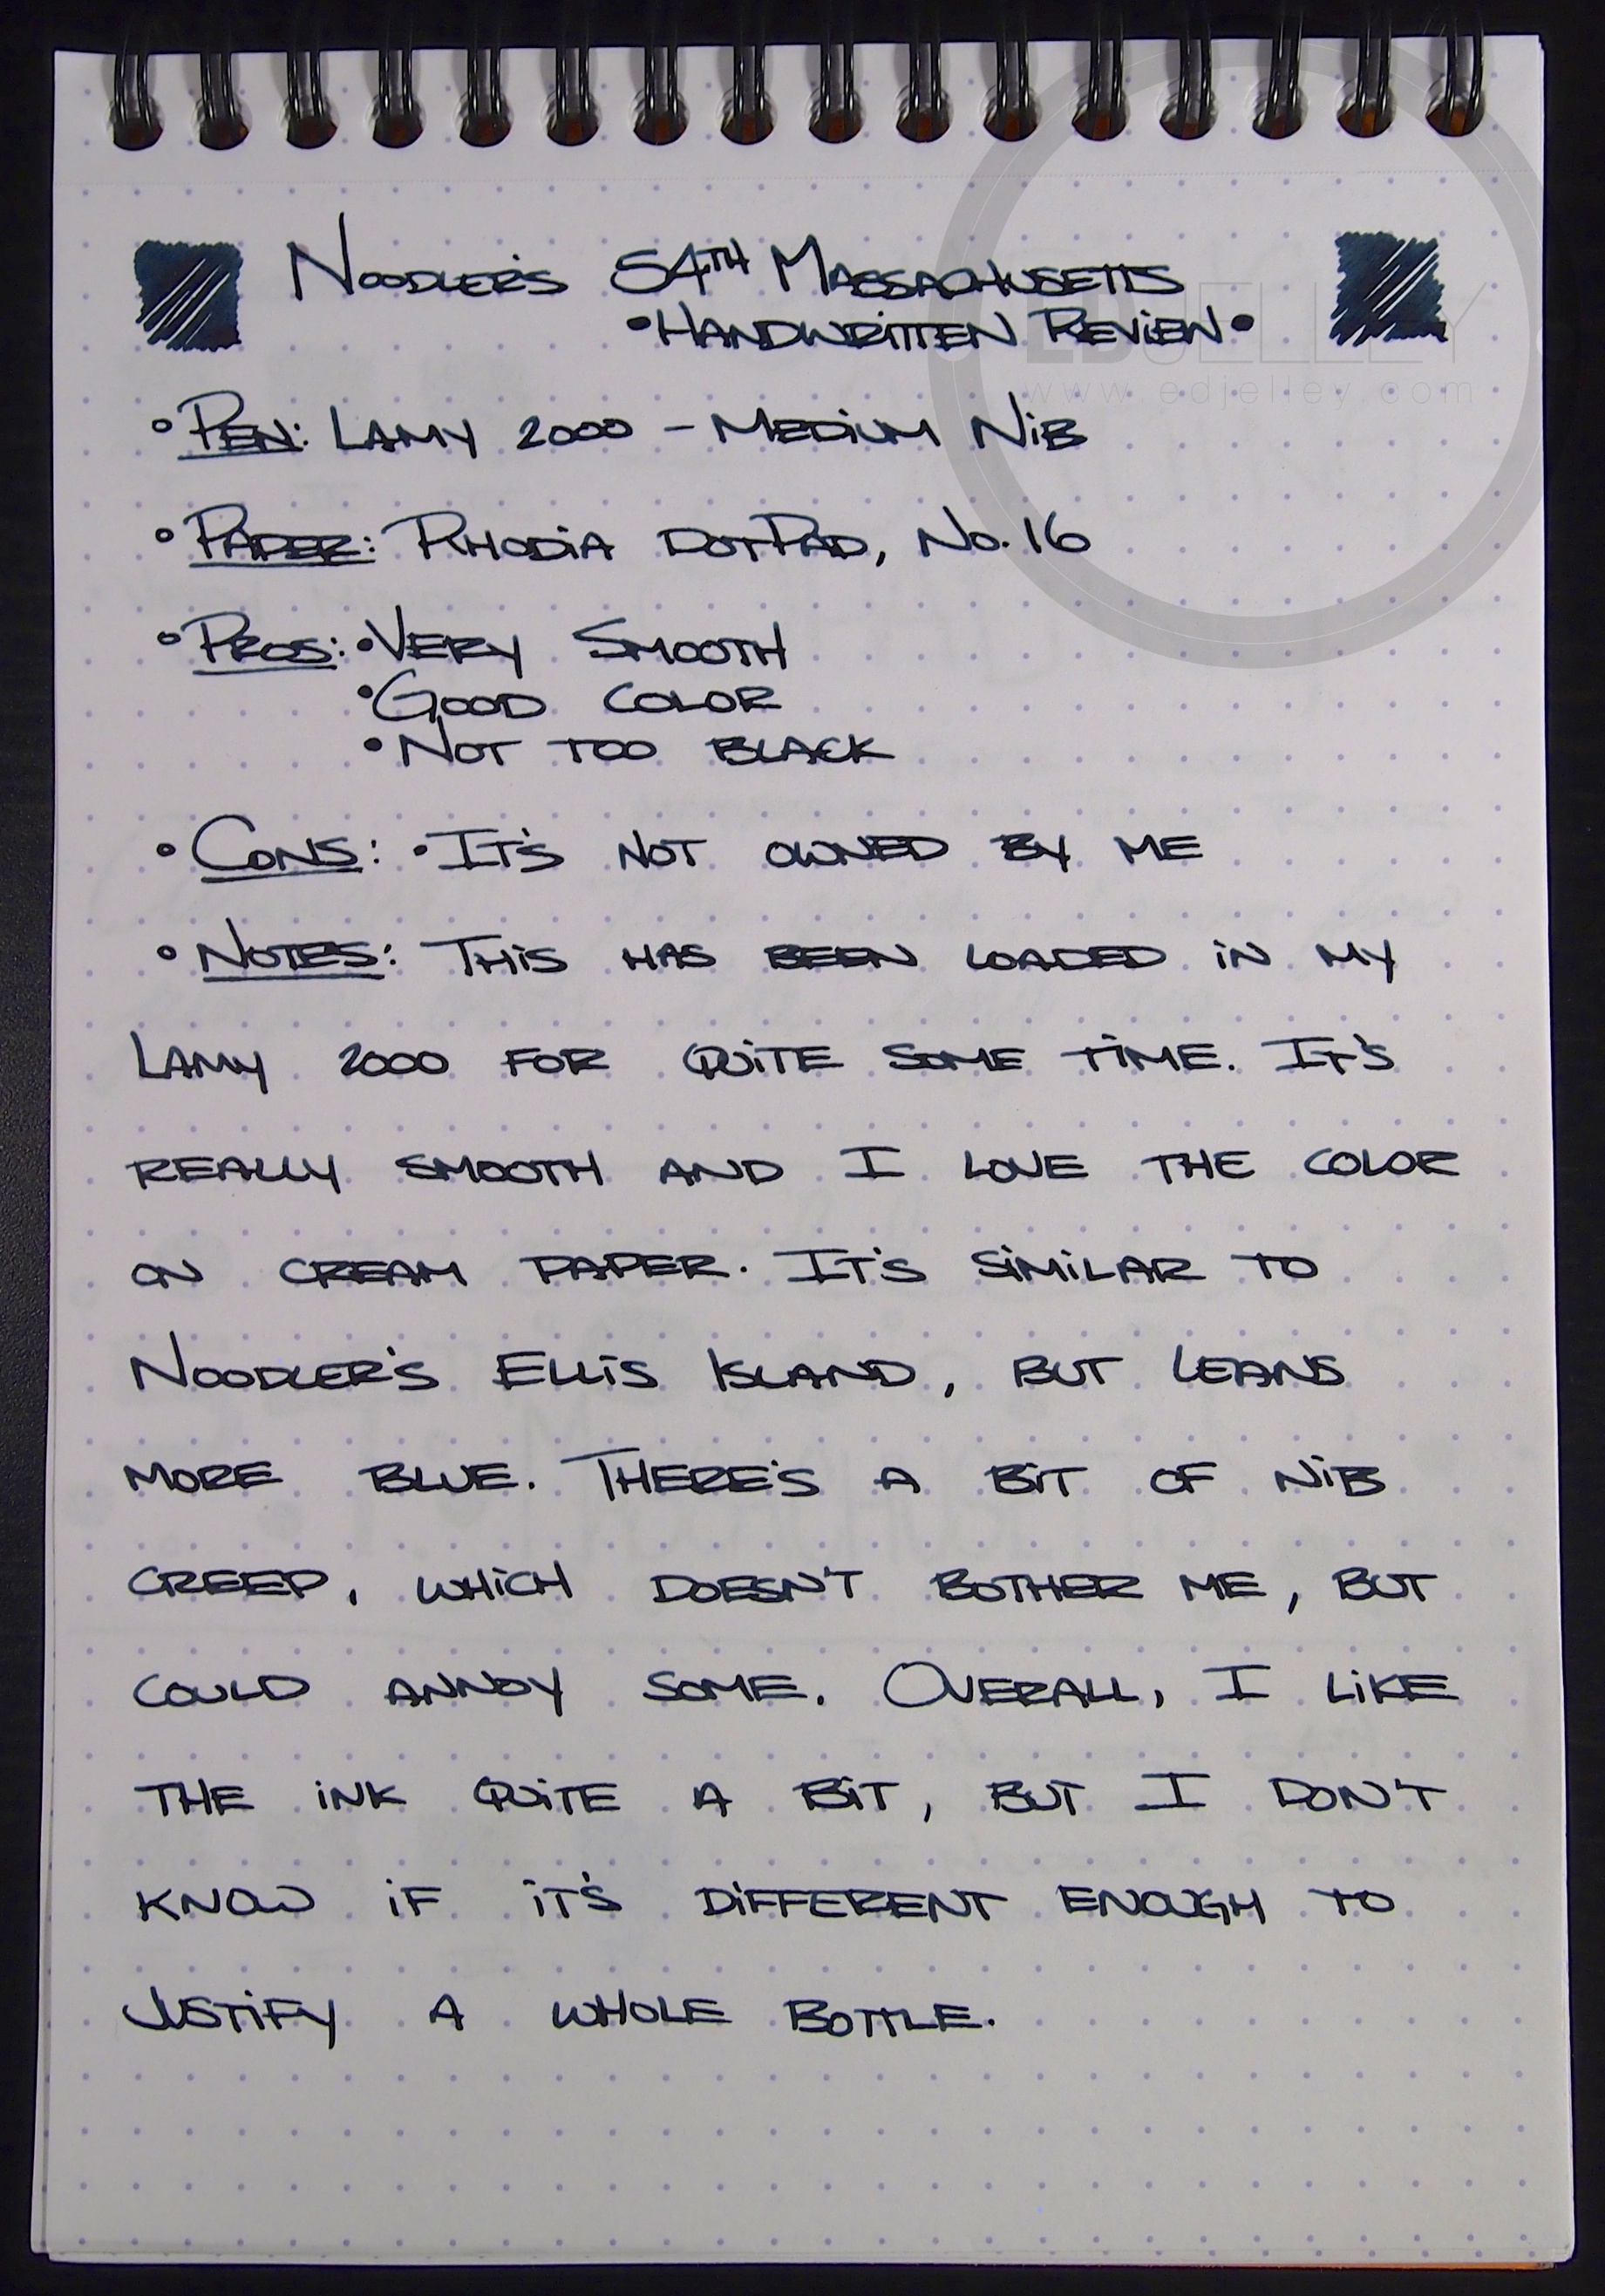 Noodler's 54TH Massachusetts
•Handwritten Review•
EDJELLEY
www.edjelley.com
° Pen: Lamy 2000 - Medium Nib
° Paper: Rhodia DotPad, No. 16
° Pros: • Very Smooth
• Good color
• Not too black
° Cons: • It's not owned by me
° Notes: This has been loaded in my
Lamy 2000 for quite some time. It's
really smooth and I love the color
on cream paper. It's similar to
Noodler's Ellis Island, but leans
more blue. There's a bit of nib
creep, which doesn't bother me, but
could annoy some. Overall, I like
the ink quite a bit, but I don't
know if it's different enough to
justify a whole bottle.